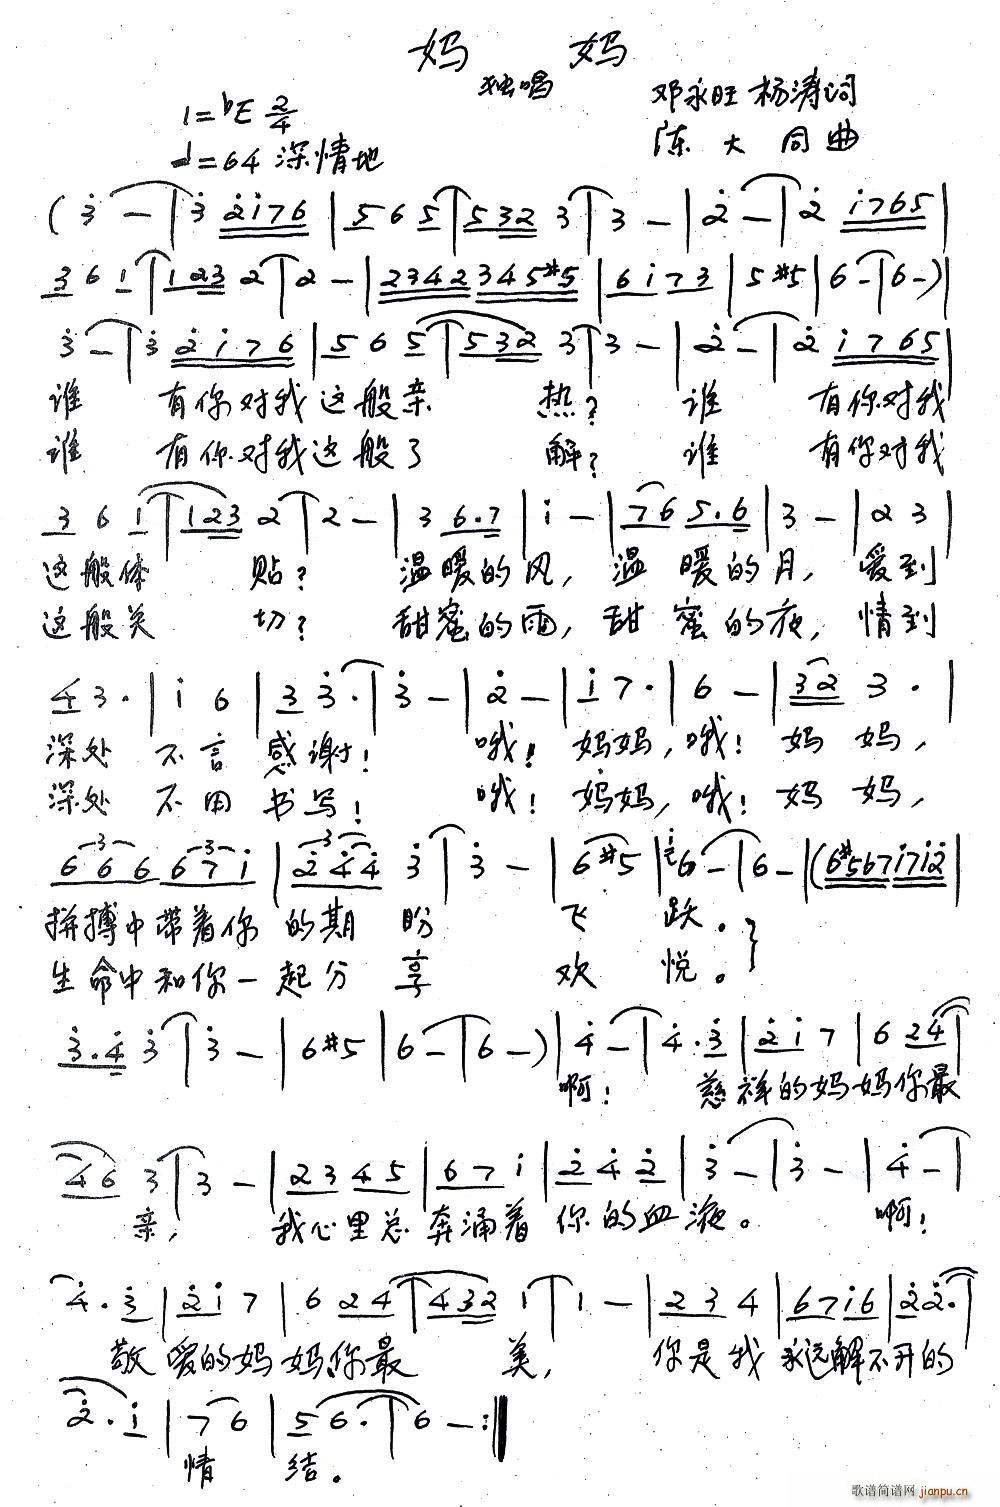 妈 妈
独唱
邓永旺 杨涛词
1=bE 2/4
陈大同曲
♩=64 深情地
(3̇ - | 3̇ 2̇i76 | 5 6 5 | 532 3 | 3 - | 2̇ - | 2̇ i765 |
3 6 1 | 123 2 | 2 - | 2342 345#5 | 6i73 | 5#5 | 6 - | 6 -) |
3̇ - | 3̇ 2̇i76 | 5 6 5 | 532 3 | 3 - | 2̇ - | 2̇ i765 |
谁 有你对我这般亲 热? 谁 有你对我
谁 有你对我这般了 解? 谁 有你对我
3 6 1 | 123 2 | 2 - | 3 6.7 | i - | 76 5.6 | 3 - | 2 3 |
这般体 贴? 温暖的风, 温 暖的月, 爱到
这般关 切? 甜蜜的雨, 甜 蜜的夜, 情到
4 3. | i 6 | 3 3̇. | 3̇ - | 2̇ - | i 7. | 6 - | 32 3. |
深处 不言 感谢! 哦! 妈妈, 哦! 妈 妈,
深处 不用 书写! 哦! 妈妈, 哦! 妈 妈,
666 67i | 2̇4̇4̇ 3̇ | 3̇ - | 6 #5 | i 6 - | 6 - | (6#567i7i2̇ |
拼搏中带着你 的期 盼 飞 跃。
生命中和你一起分 享 欢 悦。
3̇.4̇ 3̇ | 3̇ - | 6 #5 | 6 - | 6 -) | 4̇ - | 4̇.3̇ | 2̇i 7 | 6 24 |
啊! 慈祥的妈妈你最
46 3 | 3 - | 23 45 | 67 i | 2̇ 4̇ 2̇ | 3̇ - | 3̇ - | 4̇ - |
亲, 我心里总 奔涌着 你的血液。 啊!
4̇.3̇ | 2̇i 7 | 6 24 | 432 1 | 1 - | 23 4 | 67i6 | 2̇2̇. |
敬爱的妈妈你最 美, 你是我 永远解不开的
2̇.i | 7 6 | 5 6. | 6 - :||
情 结。
歌谱简谱网
jianpu.cn